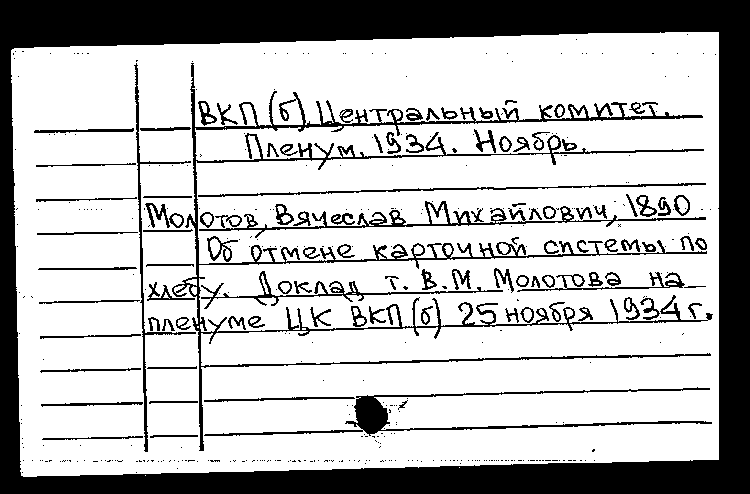 ВКП(б). Центральный комитет.
Пленум. 1934. Ноябрь.
Молотов, Вячеслав Михайлович, 1890
Об отмене карточной системы по
хлебу. Доклад т. В.М. Молотова на
пленуме ЦК ВКП(б) 25 ноября 1934 г.